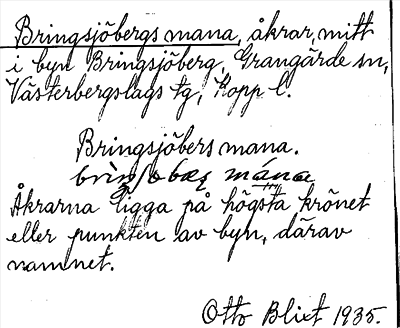 Bringsjöbergs mana, åkrar, mitt
i byn Bringsjöberg, Grangärde sn,
Västerbergslags tg, Kopp l.
Bringsjöbers mana.
Åkrarna ligga på högsta krönet
eller punkten av byn, därav
namnet.
Otto Blixt 1935.